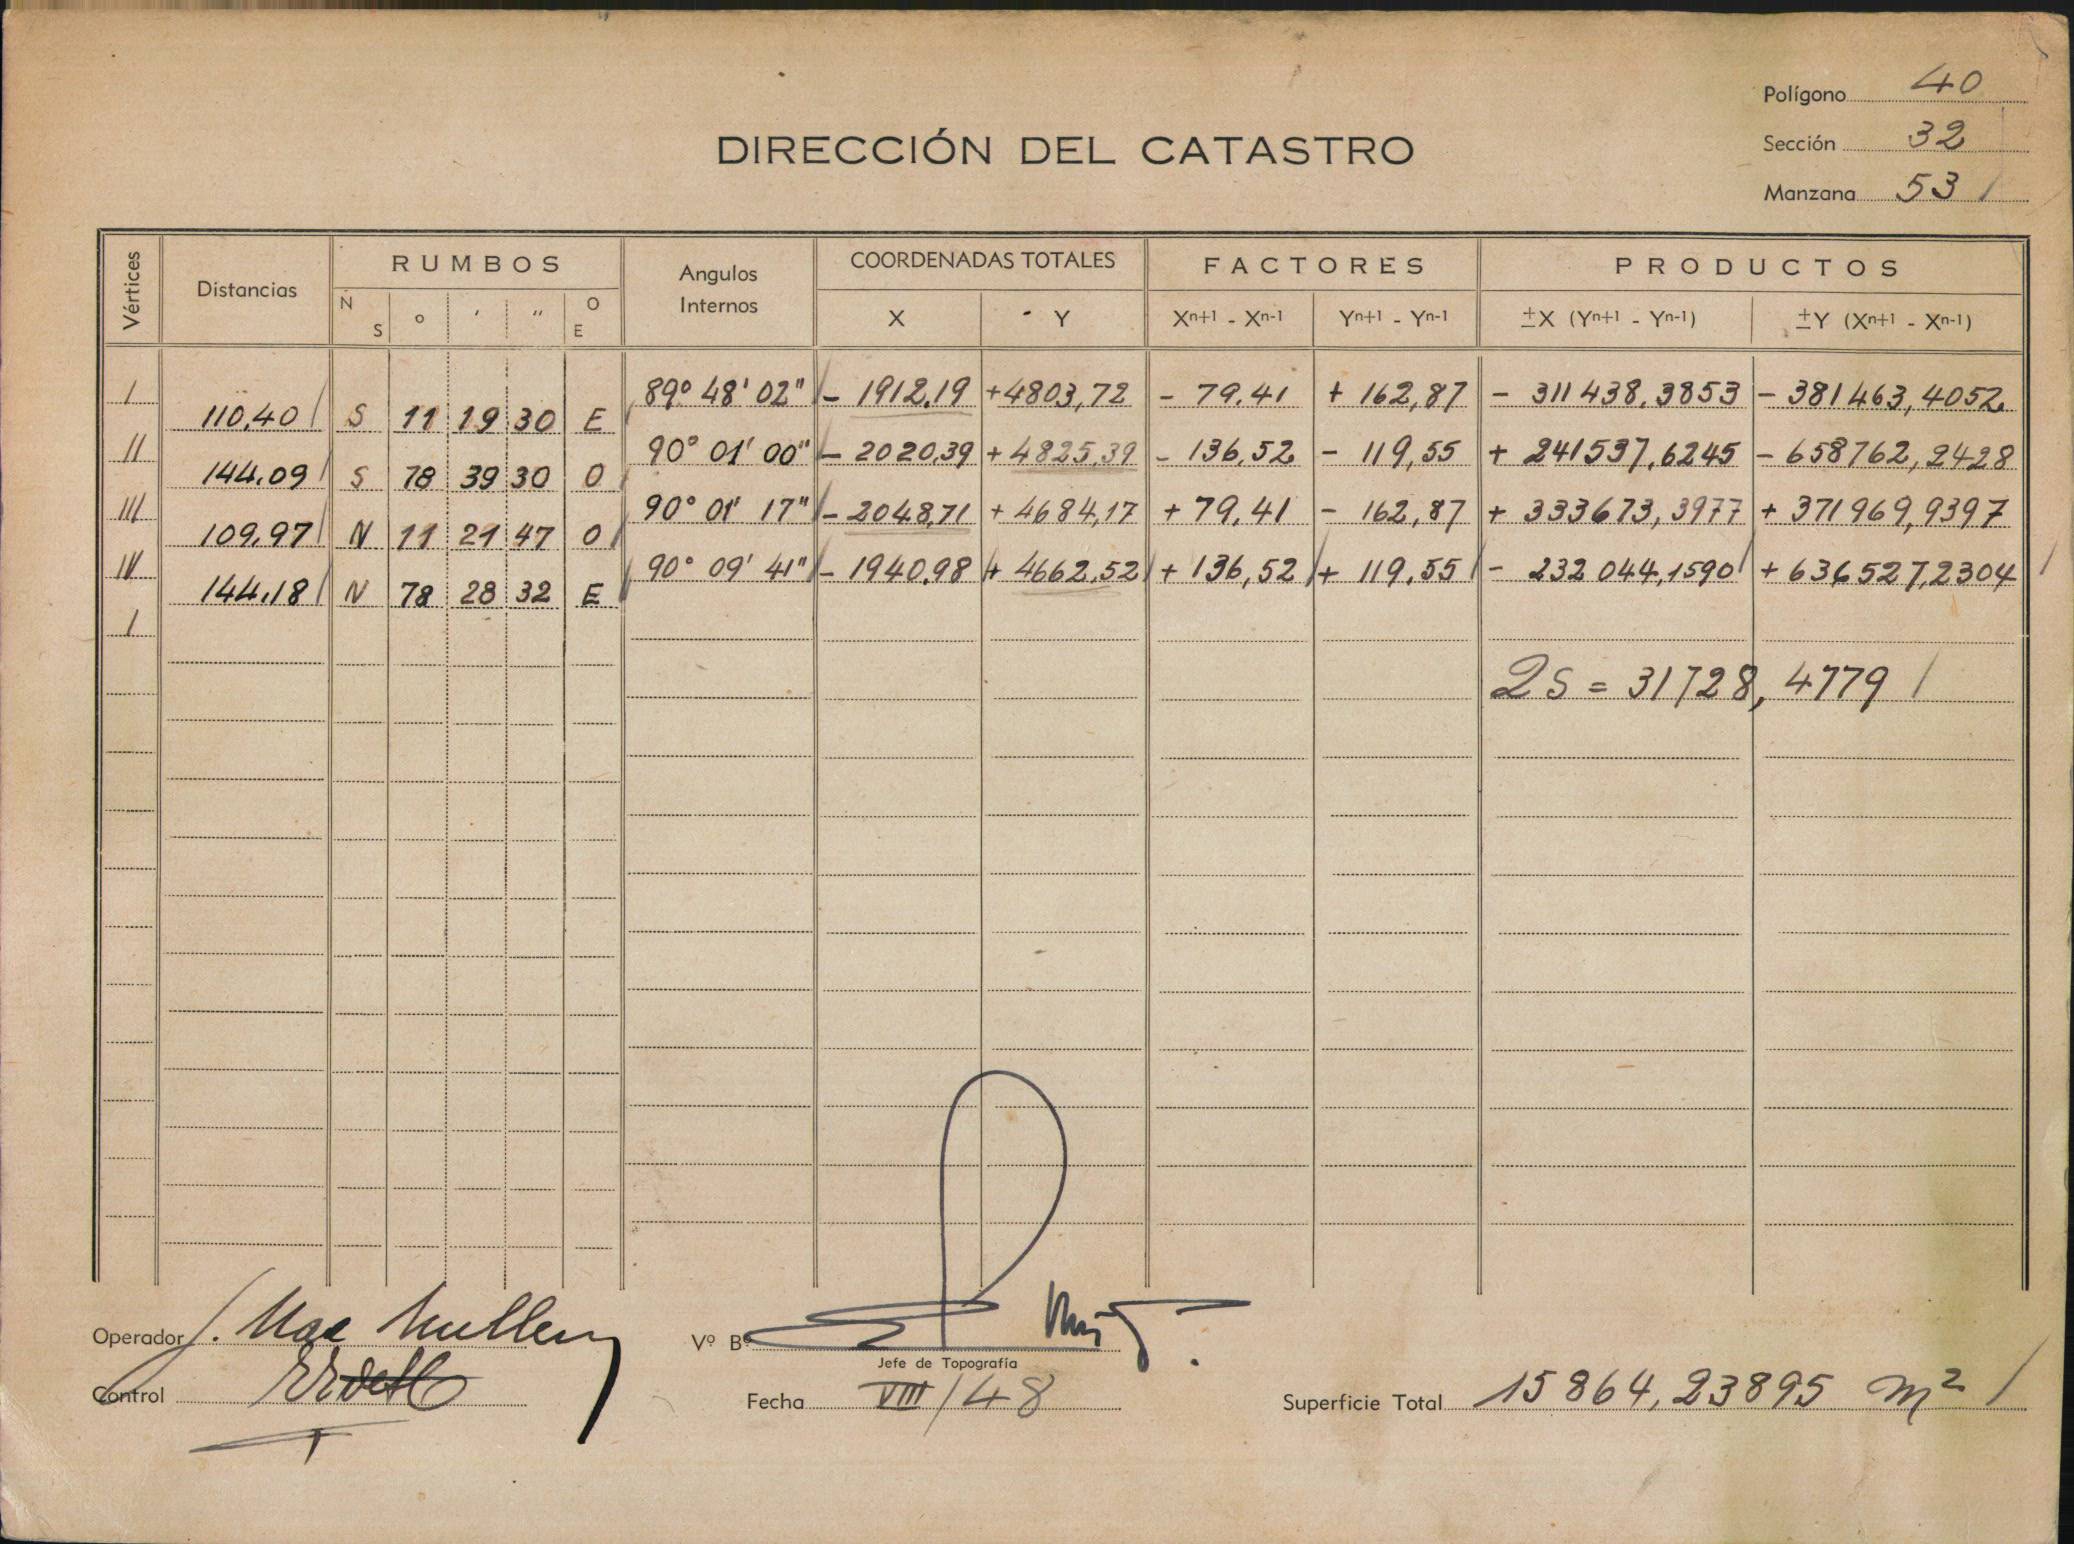 Polígono 40
DIRECCIÓN DEL CATASTRO
Sección 32
Manzana 53
Vértices Distancias RUMBOS Angulos Internos COORDENADAS TOTALES FACTORES PRODUCTOS
N S o ' " O E X Y Xn+1 - Xn-1 Yn+1 - Yn-1 ±X (Yn+1 - Yn-1) ±Y (Xn+1 - Xn-1)
I 89° 48' 02" - 1912,19 +4803,72 - 79,41 + 162,87 - 311438,3853 - 381463,4052
110,40 S 11 19 30 E
II 90° 01' 00" - 2020,39 +4825,39 - 136,52 - 119,55 + 241537,6245 - 658762,2428
144,09 S 78 39 30 O
III 90° 01' 17" - 2048,71 + 4684,17 + 79,41 - 162,87 + 333673,3977 + 371969,9397
109,97 N 11 21 47 O
IV 90° 09' 41" - 1940,98 + 4662,52 + 136,52 + 119,55 - 232044,1590 + 636527,2304
144,18 N 78 28 32 E
I
2S = 31728,4779
Operador
Vº Bº
Jefe de Topografía
Control
Fecha VIII/48
Superficie Total 15864,23895 m²